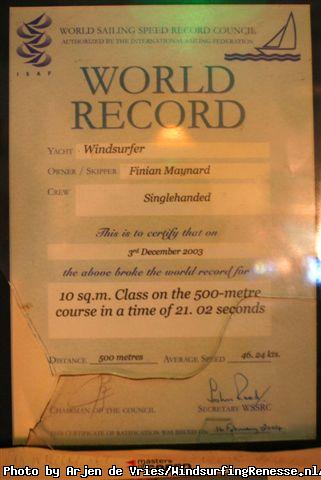 WORLD SAILING SPEED RECORD COUNCIL
AUTHORIZED BY THE INTERNATIONAL SAILING FEDERATION
ISAF
WORLD
RECORD
YACHT Windsurfer
OWNER / SKIPPER Finian Maynard
CREW
Singlehanded
This is to certify that on
3rd December 2003
the above broke the world record for
10 sq.m. Class on the 500-metre
course in a time of 21. 02 seconds
DISTANCE 500 metres AVERAGE SPEED 46. 24 kts.
CHAIRMAN OF THE COUNCIL
John Reed
SECRETARY WSSRC
THIS CERTIFICATE OF RATIFICATION WAS ISSUED ON 16 February 2004
masters
Photo by Arjen de Vries/WindsurfingRenesse.nl